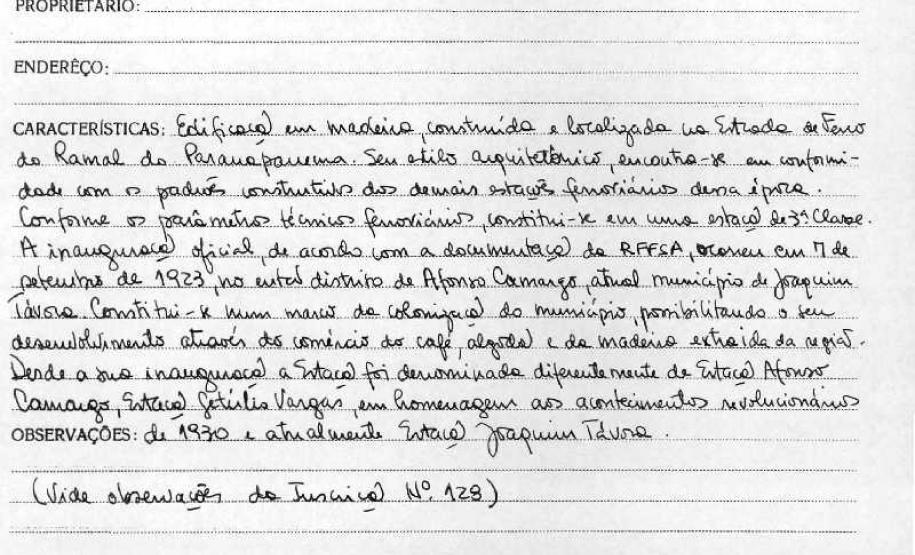 PROPRIETÁRIO:
ENDERÊÇO:
CARACTERÍSTICAS: Edificação em madeira, construída e localizada na Estrada de Ferro
do Ramal do Paranapanema. Seu estilo arquitetônico, encontra-se em conformi-
dade com os padrões construtivos das demais estações ferroviárias dessa época.
Conforme os parâmetros técnicos ferroviários, constitui-se em uma estação de 3ª Classe.
A inauguração oficial, de acordo com a documentação da RFFSA, ocorreu em 7 de
setembro de 1923, no então distrito de Afonso Camargo, atual município de Joaquim
Távora. Constitui-se num marco da colonização do município, possibilitando o seu
desenvolvimento através do comércio do café, algodão e da madeira extraída da região.
Desde a sua inauguração a Estação foi denominada diferentemente de Estação Afonso
Camargo, Estação Getúlio Vargas, em homenagem aos acontecimentos revolucionários
OBSERVAÇÕES: de 1930 e atualmente Estação Joaquim Távora.
(Vide observações da Inscrição Nº 128)